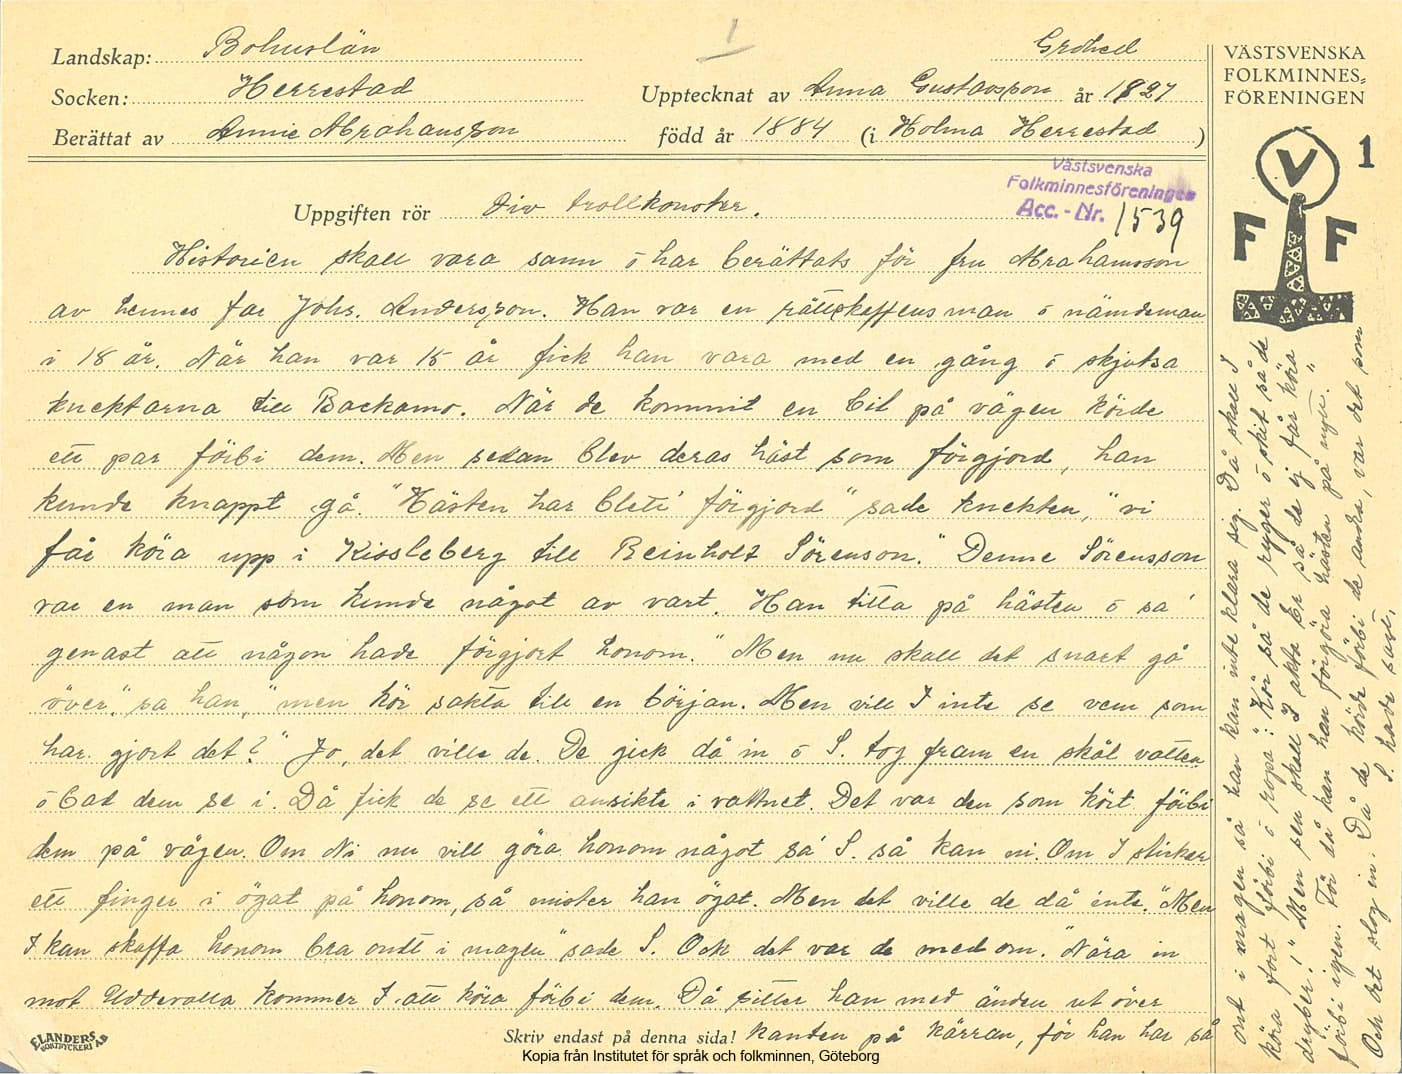 Landskap: Bohuslän
Socken: Herrestad
Berättat av Annie Abrahansson
1
Gröhed
Upptecknat av Anna Gustavsson år 1927
född år 1884 (i Holma Herrestad )
VÄSTSVENSKA
FOLKMINNES-
FÖRENINGEN
1
V
F F
Västsvenska
Folkminnesföreningen
Acc.-Nr. 1539
Uppgiften rör Div trollkonster.
Historien skall vara sann o har berättats för fru Abrahamsson
av hennes far Johs. Andersson. Han var en rättskaffens man o nämdeman
i 18 år. När han var 15 år fick han vara med en gång o skjutsa
knektarna till Backamo. När de kommit en bit på vägen körde
ett par förbi dem. Men sedan blev deras häst som förgjord, han
kunde knappt gå. "Hästen har blett förgjord" sade knekten, "vi
får köra upp i Kissleberg till Reinholt Sörenson." Denne Sörensson
var en man som kunde något av vart. Han titta på hästen o sa'
genast att någon hade förgjort honom. "Men nu skall det snart gå
över", sa han, "men kör sakta till en början. Men vill I inte se vem som
har gjort det?" Jo, det ville de. De gick då in o S. tog fram en skål vatten
o bad dem se i. Då fick de se ett ansikte i vattnet. Det var den som kört förbi
dem på vägen. Om Ni nu vill göra honom något sa' S. så kan ni. Om I sticker
ett finger i ögat på honom, så mister han ögat. Men det ville de då inte. "Men
I kan skaffa honom bra ondt i magen" sade S. Ock det var de med om. "Nära in
mot Uddevalla kommer I att köra förbi dem. Då sitter han med ändan ut över
kanten på kärran, för han har så
ont i magen så han kan inte klara sig. Då skall I
köra fort förbi o ropa: "Kör så de ryger o skit så de
dryber!" Men sen skall I akta Er så de ej får köra
förbi igen. För då kan han förgöra hästen på nytt."
Och det slog in. Då de körde förbi de andra, var det som
S. hade sagt.
Skriv endast på denna sida!
ELANDERS
BOKTRYCKERI AB
Kopia från Institutet för språk och folkminnen, Göteborg